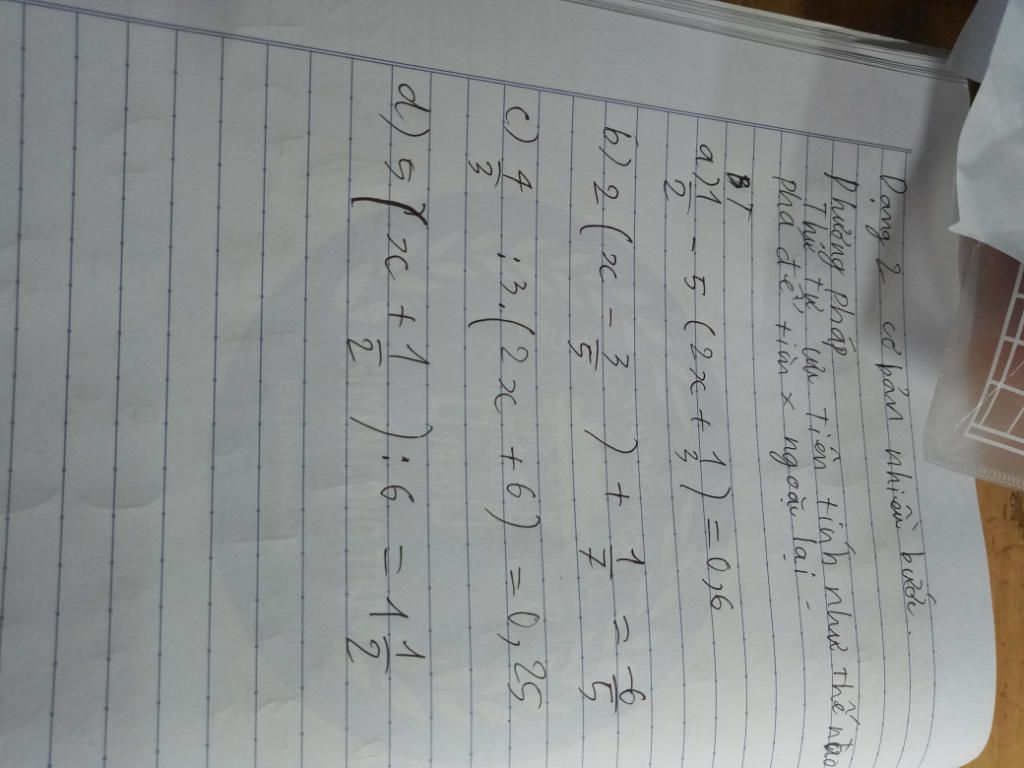 Dạng 2 cơ bản nhiều bước.
Phương pháp
Thứ tự ưu tiên tính như thế nào
phá để tìm x ngoặc lại -
BT
a) 1/2 - 5 (2x + 1/3) = 0,6
b) 2 (x - 3/5) + 1/7 = 6/5
c) 4/3 : 3.(2x + 6) = 0,25
d) 5 (x + 1/2) : 6 = 1 1/2